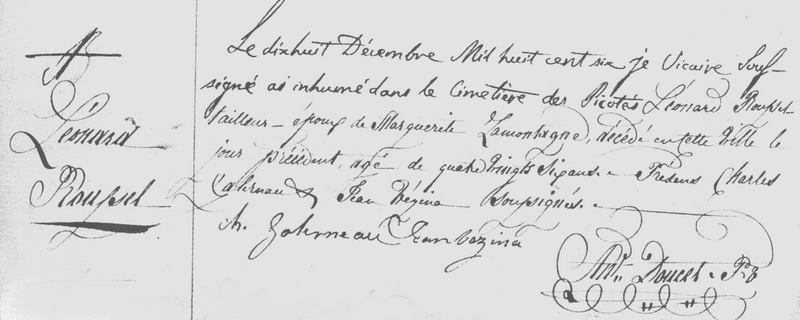 Léonard
Roussel
Le dixhuit Décembre Mil huit cent six je Vicaire Sous-
signé ai inhumé dans le Cimetière des Picotés Léonard Roussel
tailleur - époux de Marguerite Lamontagne, décédé en cette Ville le
jour précédent, agé de quatre Vingts Six ans. Présens Charles
Jean Vézina Soussignés.
Ch. Jean Vezina
And. Doucet. Ptre